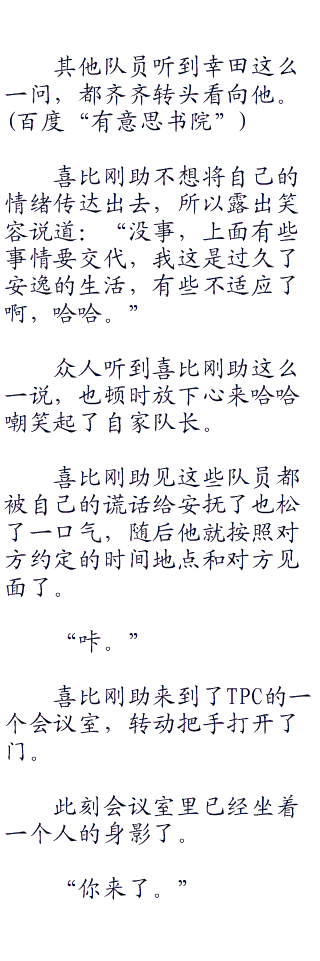 其他队员听到幸田这么
一问，都齐齐转头看向他。
(百度“有意思书院”)
喜比刚助不想将自己的
情绪传达出去，所以露出笑
容说道：“没事，上面有些
事情要交代，我这是过久了
安逸的生活，有些不适应了
啊，哈哈。”
众人听到喜比刚助这么
一说，也顿时放下心来哈哈
嘲笑起了自家队长。
喜比刚助见这些队员都
被自己的谎话给安抚了也松
了一口气，随后他就按照对
方约定的时间地点和对方见
面了。
“咔。”
喜比刚助来到了TPC的一
个会议室，转动把手打开了
门。
此刻会议室里已经坐着
一个人的身影了。
“你来了。”